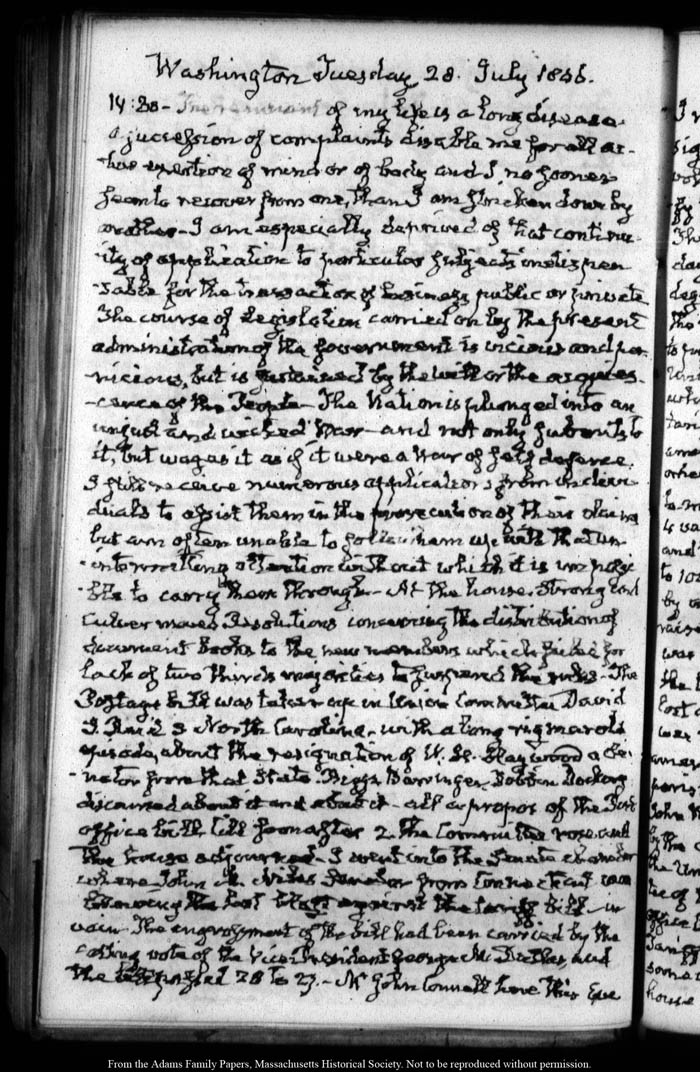 Washington Tuesday 28. July 1846.
14:30 - of my life is a long disease.
A succession of complaints disable me for all ac-
-tive exertion of mind or of body and I no sooner
seem to recover from one, than I am stricken down by
another - I am especially deprived of that continu-
-ity of application to particular subjects indispen
-sable for the transaction of business public or private
The course of Legislation carried on by the present
administration of the Government is vicious and per
-nicious, but is sustained by the will or the acquies-
-cence of the People - The Nation is plunged into an
unjust and wicked War - and not only submits to
it, but wages it as if it were a War of self defence.
I still receive numerous applications from indivi-
duals to assist them in the prosecution of their claims
but am often unable to follow them up with that un-
-intermitting attention without which it is impossi
-ble to carry them through - At the house, Strong and
Culver moved Resolutions concerning the distribution of
document Books to the new members which failed for
lack of two thirds majorities to suspend the rules - The
Postage bill was taken up in Union Committee David
S. Reid of North Carolina, with a long rigmarole
episode, about the resignation of W. H. Haywood a Se-
-nator from that State. Biggs Barringer, Dobbin Dockery
discoursed about it and about it - all apropos of the Post
office bill, till soon after 2. the Committee rose and
the house adjourned - I went into the Senate chamber
where John M. Niles Senator from Connecticut was
the last blast against the tariff bill - in
vain - The engrossment of the bill had been carried by the
casting vote of the Vice President George M. Dallas, and
the bill passed 28 to 27. - Mr John Connell here this Eve